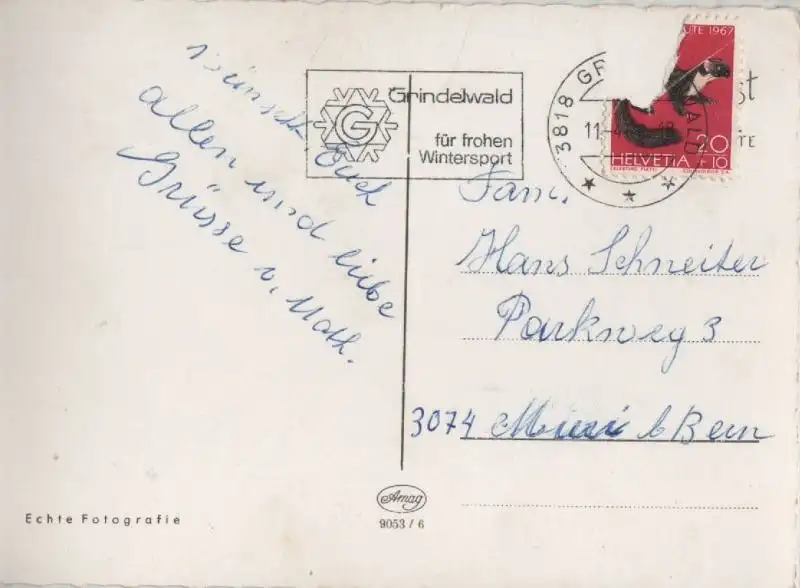 wünscht Euch
allen und liebe
Grüsse v. Math.
Grindelwald
G
für frohen
Wintersport
3818 GR WALD
11-4
18
UTE 1967
20
+10
HELVETIA
Fam.
Hans Schneiter
Parkweg 3
3074 Muri b/Bern
Echte Fotografie
Amag
9053 / 6